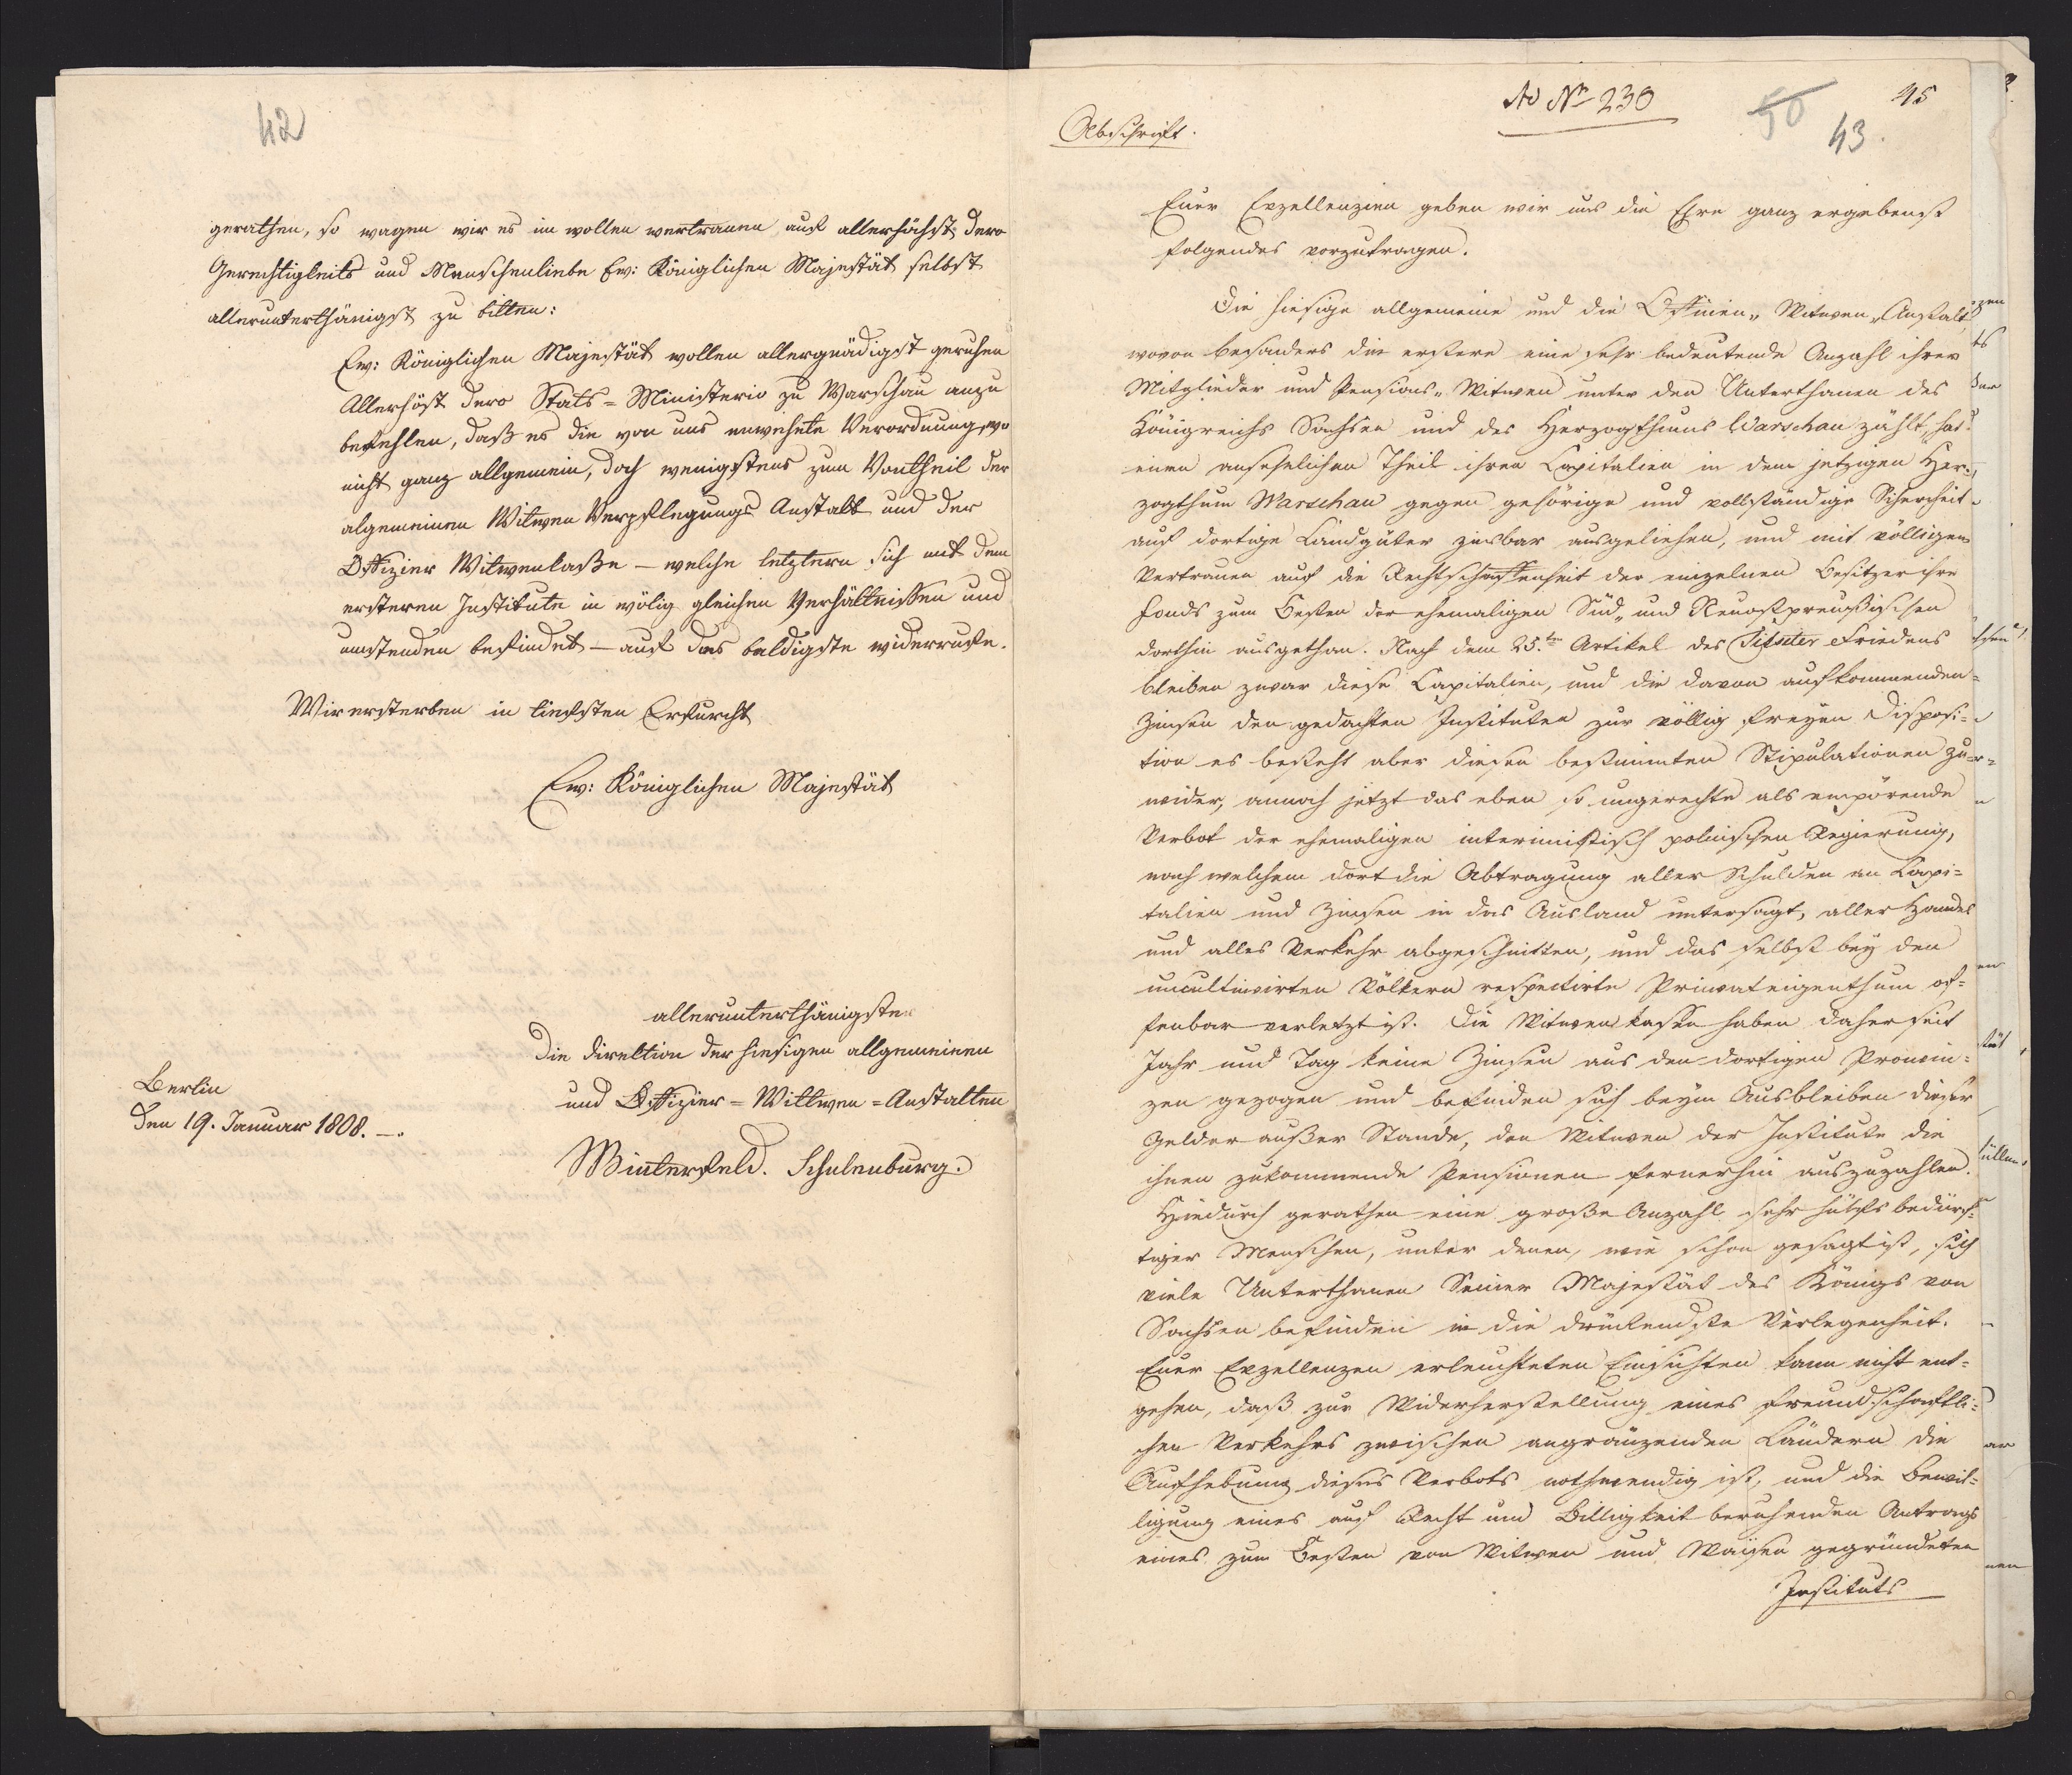 42
gerathen, so wagen wir es im wollen wertrauen auf allerhöchst dero
Gerechtigkeits und Menschenliebe Ew: Königlichen Majestät selbst
allerunterthänigst zu bitten:
Ew: Königlichen Majestät wollen allergnädigst geruhen
Allerhöst dero Stats-Ministerio zu Warschau anzu
befehlen, daß es die von uns erwehnte Verordnung, wo
nicht ganz allgemein, doch wenigstens zum Vortheil der
algemeinen Witwen Verpflegungs Anstalt und der
Offizier Witwenkaße – welche letztern sich mit dem
ersteren Institute in wölig gleichen Verhältnißen und
umstenden befindet – auf das baldigste widerrufe.
Wir ersterben in tiefsten Erfurcht
Ew: Königlichen Majestät
allerunterthänigste
Die Direktion der hiesigen allgemeinen
und Offizier-Wittwen-Anstalten
Berlin
den 19. Januar 1808. —.
Winterfeld. Schulenburg.
Ad Nr 230
45
50
43.
Abschrift.
Euer Exzellenzien geben wir uns die Ehre ganz ergebenst
folgendes vorzutragen.
Die hiesige allgemeine und die Witwen-Anstalt
wovon besonders die erstere eine sehr bedeutende Anzahl ihrer
Mitglieder und Pensions-Witwen unter den Unterthanen des
Königreichs Sachsen und des Herzogthums Warschau zählt, hat
einen ansehnlichen Theil ihrer Capitalien in dem jetzigen Her-
zogthum Warschau gegen gehörige und vollständige Sicherheit
auf dortige Landgüter zinsbar ausgeliehen, und mit völligem
Vertrauen auf die Rechtschaffenheit der einzelnen Besitzer ihre
Fonds zum Besten der ehemaligen Süd- und Neuostpreußischen
dorthin ausgethan. Nach dem 25.ten Artikel des Tilsiter Friedens
bleiben zwar diese Capitalien, und die davon aufkommenden
Zinsen den gedachten Instituten zur völlig freyen Disposi-
tion es besteht aber diesen bestimmten Stipulationen zu-
wider, annoch jetzt das eben so ungerechte als empörende
Verbot der ehemaligen interimistisch polnischen Regierung,
nach welchem dort die Abtragung aller Schulden an Capi-
talien und Zinsen in das Ausland untersagt, aller Handel
und alles Verkehr abgeschnitten, und das selbst bey den
uncultivirten Völkern respectirte Privateigenthum of-
fenbar verletzt ist. Die Witwenkassen haben daher seit
Jahr und Tag keine Zinsen aus den dortigen Provin-
zen gezogen und befinden sich beym Ausbleiben dieser
Gelder außer Stande, den Witwen der Institute die
ihnen zukommende Pensionen fernerhin auszuzahlen.
Hiedurch gerathen eine große Anzahl sehr hülfsbedürf-
tiger Menschen, unter denen, wie schon gesagt ist, sich
viele Unterthanen Seiner Majestät des Königs von
Sachsen befinden in die drückendste Verlegenheit.
Euer Exzellenzen erleuchteten Einsichten kann nicht ent-
gehen, daß zur Widerherstellung eines freundschaftli-
chen Verkehrs zwischen angränzenden Ländern die
Aufhebung dieses Verbots nothwendig ist, und die Bewil-
ligung eines auf Recht und Billigkeit beruhenden Antrags
eines zum Besten von Witwen und Waysen gegründeten
Instituts